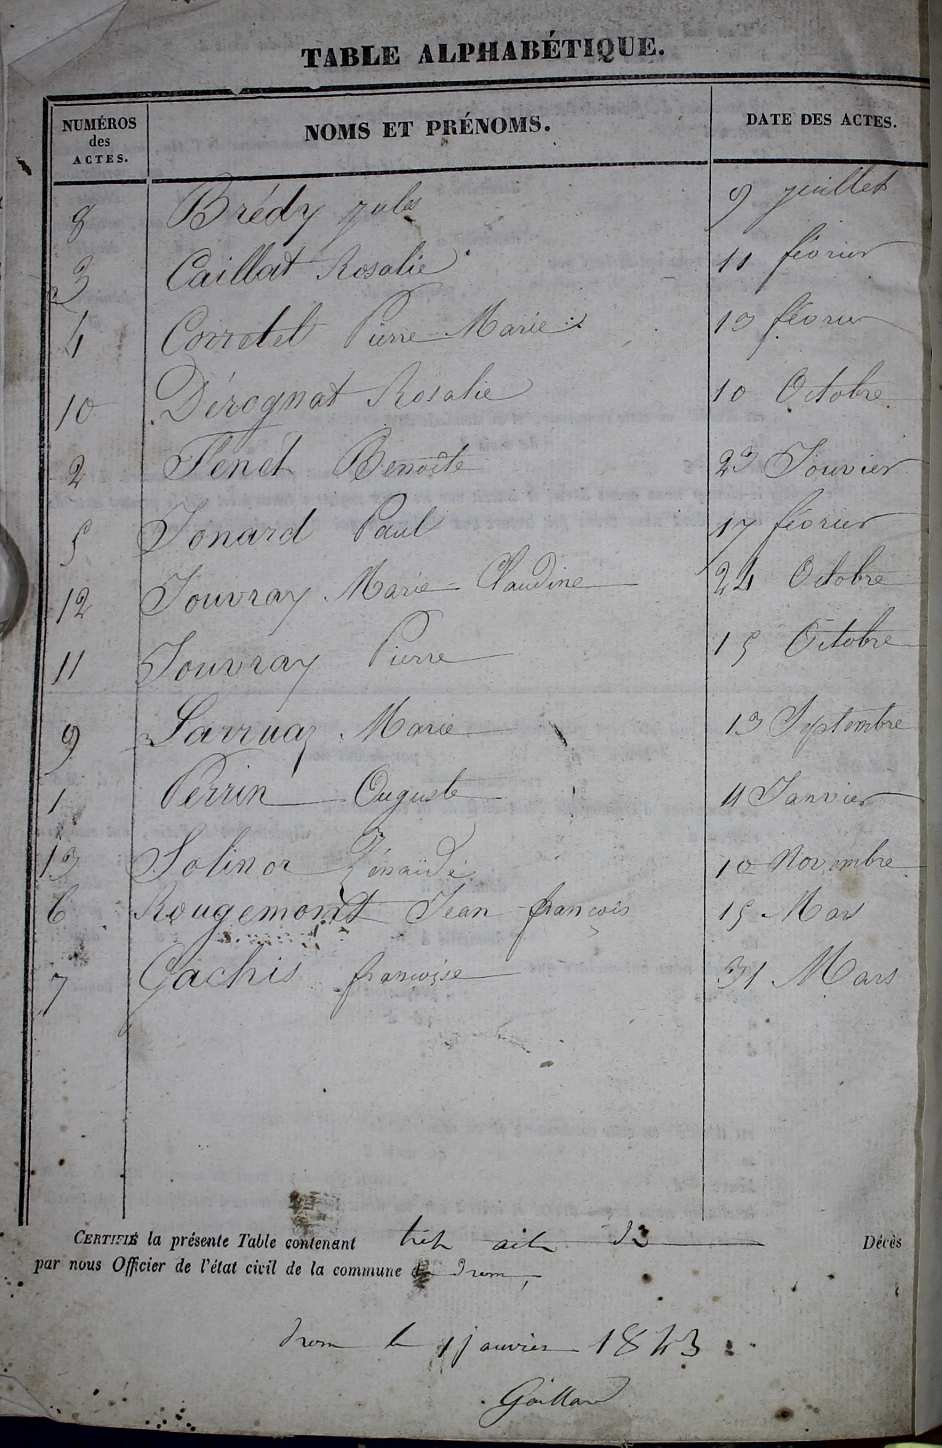 TABLE ALPHABÉTIQUE.
NUMÉROS des ACTES. NOMS ET PRÉNOMS. DATE DES ACTES.
8 Brédy jules 9 juillet
3 Caillat Rosalie 11 février
4 Corretel Pierre Marie 13 février
10 Dérognat Rosalie 10 Octobre
2 Fenet Benoite 23 Jouvier
5 Jonard Paul 17 février
12 Jouvray Marie Claudine 24 Octobre
11 Jouvray Pierre 15 Octobre
9 Marie 13 Septembre
1 Perrin Auguste 11 Janvier
13 10 Novembre
6 Rougemont Jean françois 15 Mars
7 Gachis françoise 31 Mars
CERTIFIÉ la présente Table contenant de Décès
par nous Officier de l'état civil de la commune de drom,
drom le 1 janvier 1843
Gaillard